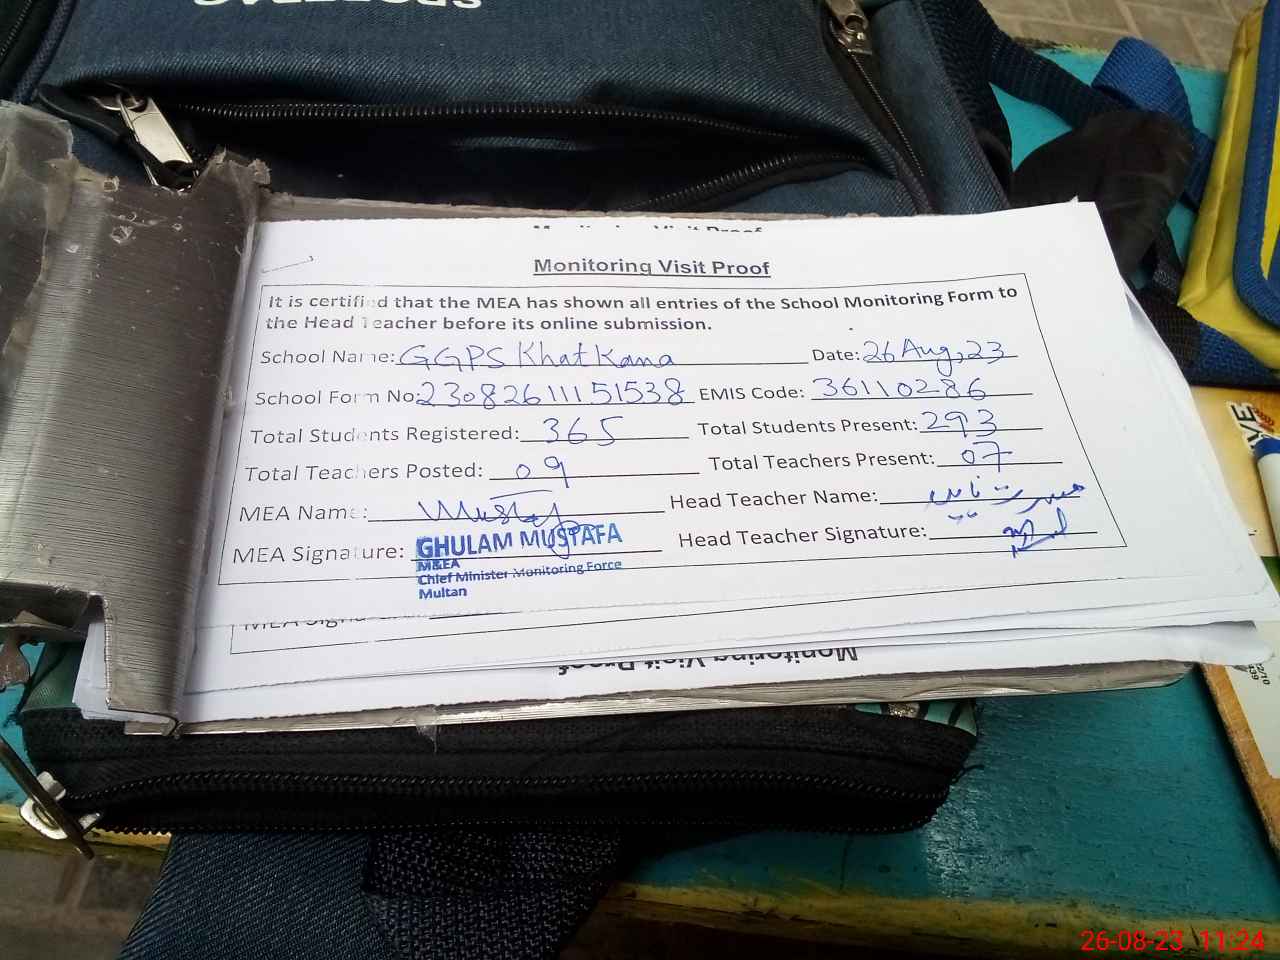 SPORTING
Monitoring Visit Proof
Monitoring Visit Proof
It is certified that the MEA has shown all entries of the School Monitoring Form to
the Head Teacher before its online submission.
School Name: GGPS Khat Kana Date: 26 Aug, 23
School Form No: 23082611151538 EMIS Code: 36110286
Total Students Registered: 365 Total Students Present: 293
Total Teachers Posted: 09 Total Teachers Present: 07
MEA Name: Head Teacher Name:
MEA Signature: Head Teacher Signature:
GHULAM MUSTAFA
M&EA
Chief Minister Monitoring Force
Multan
MEA Signature:
Monitoring Visit Proof
26-08-23 11:24